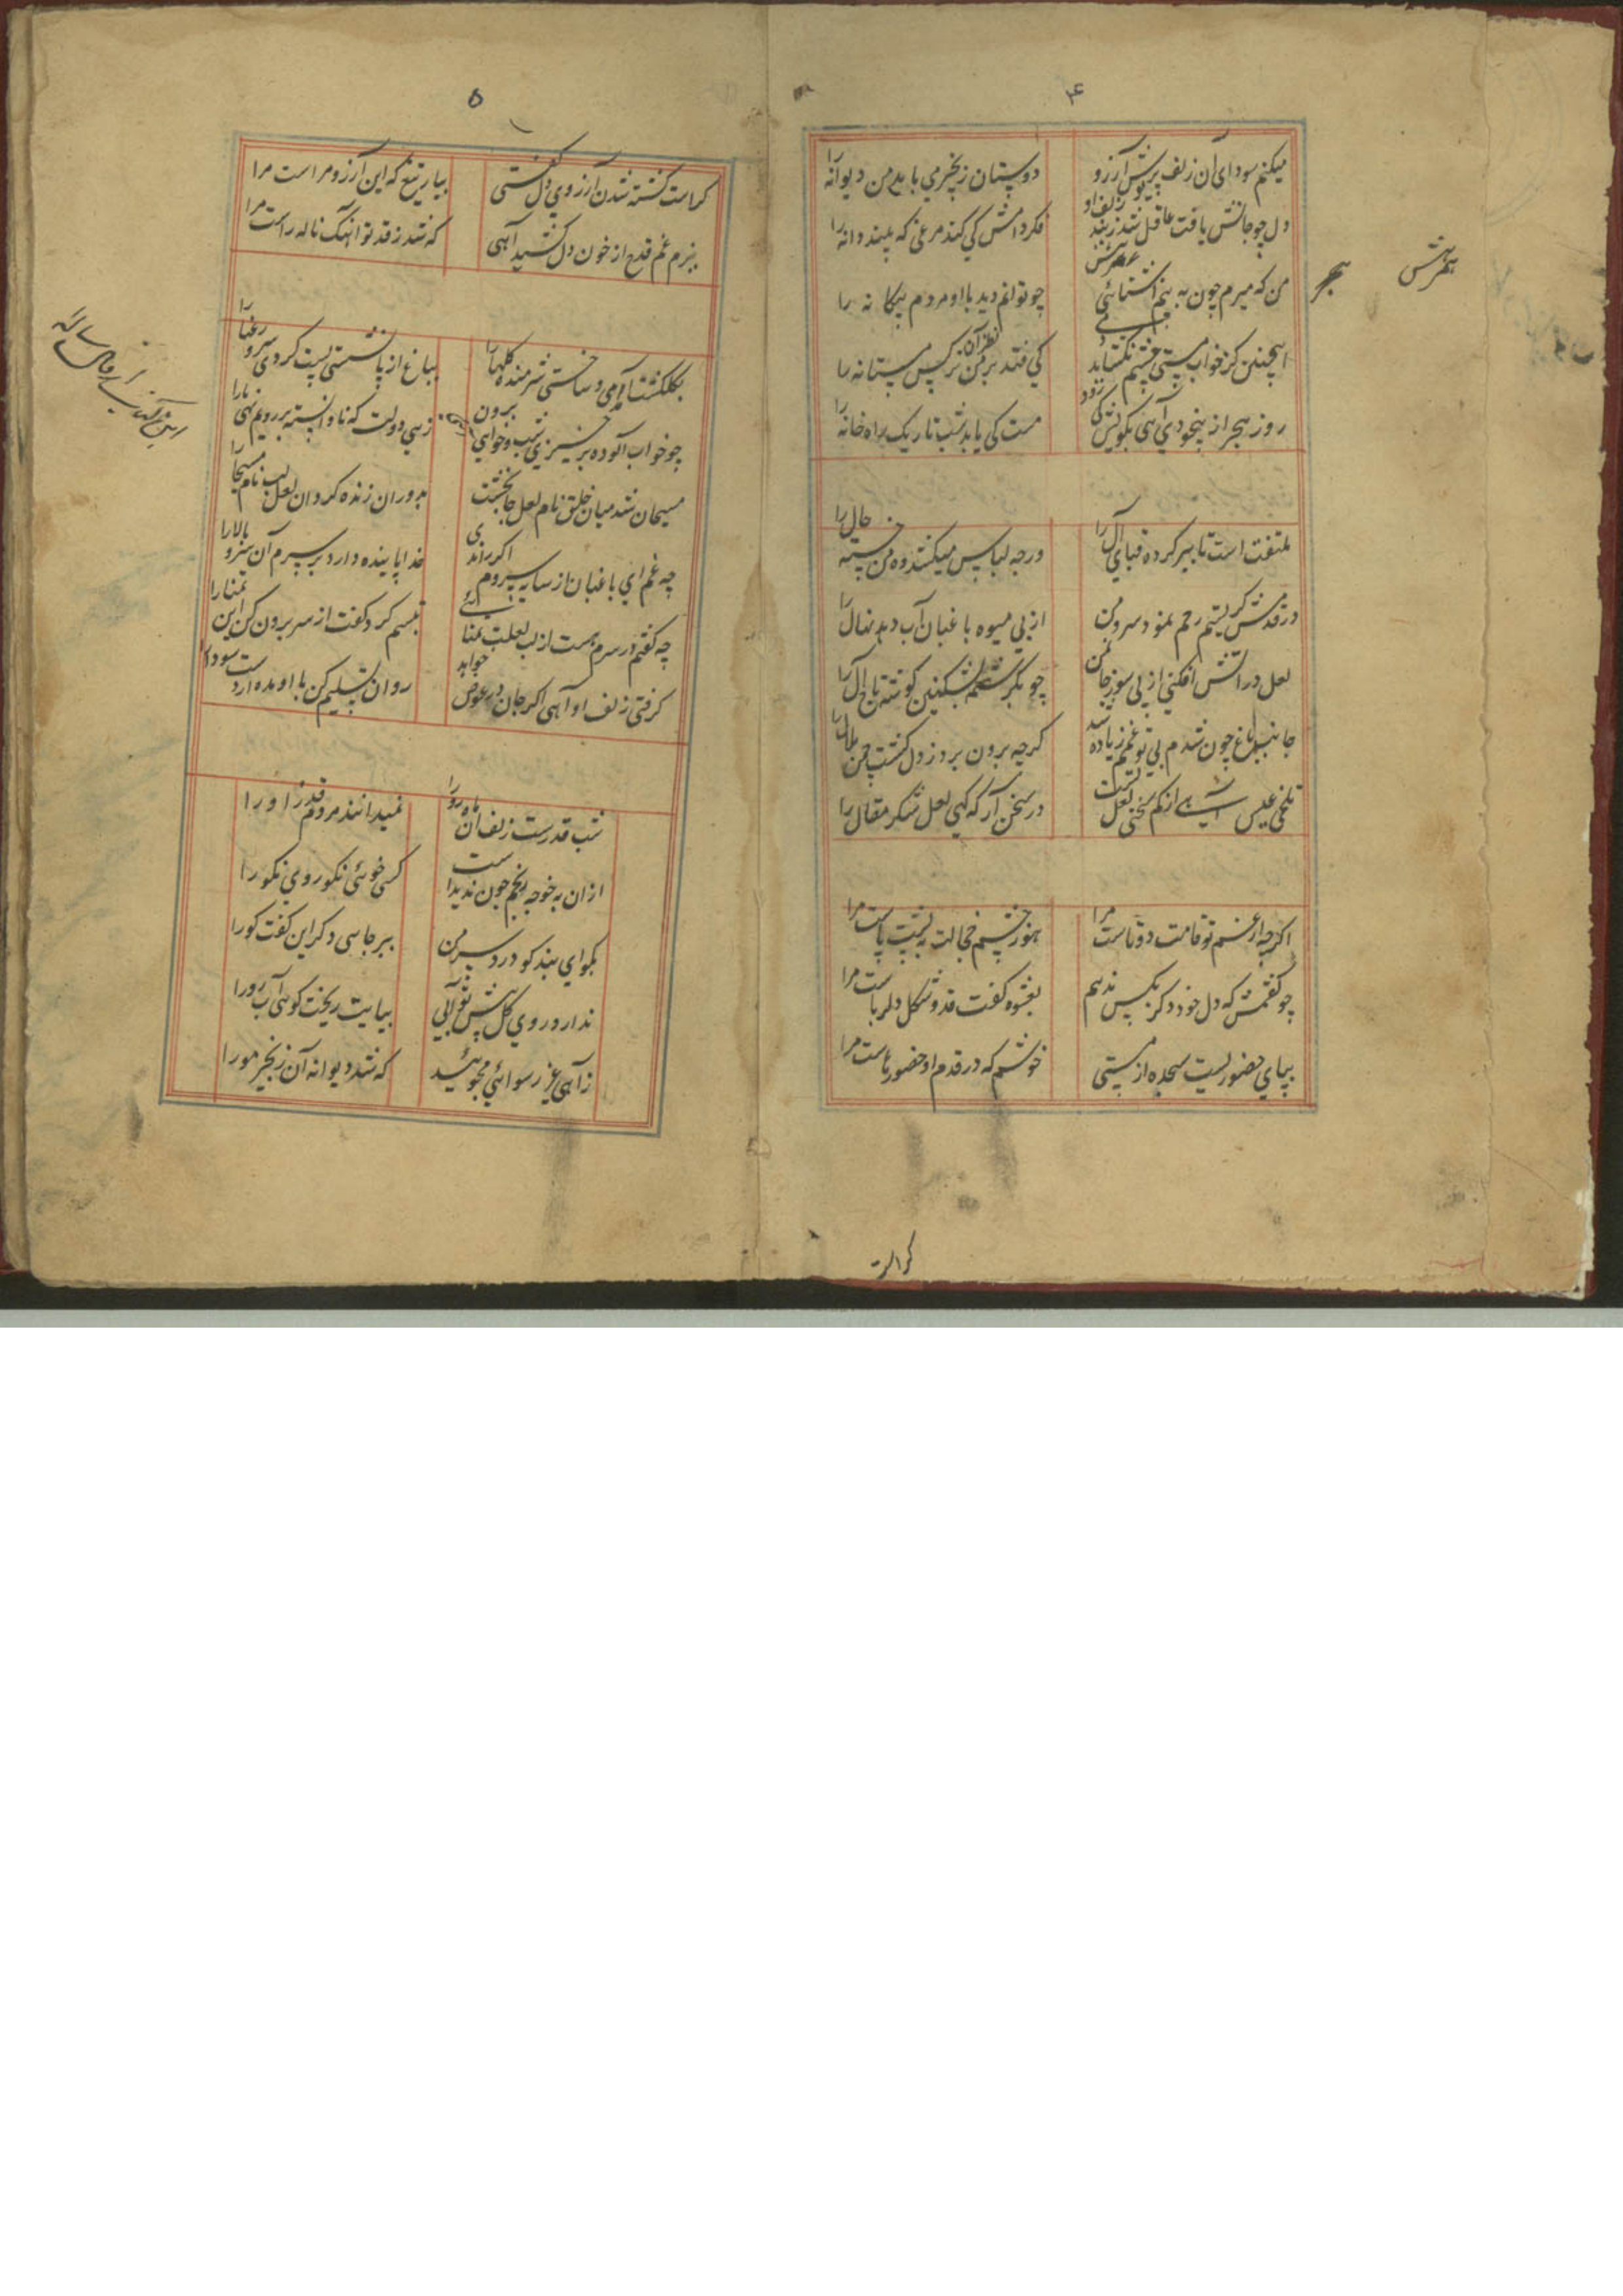 ۴
میکنم سودای آن زلف پریش آرزو
دوستان زنجیر می باید من دیوانه را
دل چو جانش یافت عاقل شد ز بند زلف او
فکر دامش کی کند مرغی که بیند دانه را
من که میرم چون به بینم آشنائی
چو توانم دید با او مردم بیکانه را
اینچنین کز خواب مستی چشم نکشاید
کی فتد بر من نظر آن نرکس مستانه را
روز هجر از بیخودی آهی بکویش کی رود
مست کی یابد شب تاریک راه خانه را
ملتفت است تا ببر کرده قبای آل را
در چه لباس میکشد وه من خسته حال را
در قدمش کریستم رحم نمود سرو من
از پی میوه باغبان آب دهد نهال را
لعل در آتش افکنی از پی سوز جان من
چو بکرشمه بشکنی کوشه تاج آل را
جانب باغ چون شدم بی تو غمم زیاده شد
کرچه برون برد ز دل کشت چمن ملال را
تلخی عیش آهی از کم سخنی لعل تست
در سخن آر که کهی لعل شکر مقال را
اکرچه از غم تو قامت دوتاست مرا
هنوز چشم خجالت به پشت پاست مرا
چو کفتمش که دل خود دکر بکس ندهم
بعشوه کفت قد و شکل دلرباست مرا
بپای حضور نیست سجده از مستی
خوشم که در قدم او حضورهاست مرا
کراست
۵
کراست کشته شدن آرزوی دل کفتی
بیار تیغ که این آرزو مراست مرا
ببزم غم قدح از خون دل کشید آهی
که شد ز قد تو آهنک ناله راست مرا
بکلکشت آمدی و ساختی شرمنده کلها را
بباغ از پا نشستی پست کردی سرو رعنا را
چو خواب آلوده برخیزی شب و خواهی برون
زهی دولت که نادانسته بر رویم نهی پا را
مسیحا شد میان خلق نام لعل جانبخشت
بدوران زنده کرد آن لعل لب نام مسیحا را
چه غم ای باغبان از سایه سروم اکر راندی
خدا پاینده دارد بر سرم آن سرو بالا را
چه کفتم در سرم هست از لب لعلت تمنائی
تبسم کرد و کفت از سر برون کن این تمنا را
کرفتی زلف او آهی اکر جان در عوض خواهد
روان تسلیم کن با او مده از دست سودا را
شب قدرست زلف آن ماه رو را
نمیدانند مردم قدر او را
از آن به خو چه رنجم چون ندیدست
کسی خوئی نکو روی نکو را
بکو ای پند کو درد سر من
بهر جاهی دکر این کفت کو را
ندارد روی کل پیش تو آبی
بپایت ریخت کوئی آب رو را
ز آهی غیر رسوائی مجوئید
که شد دیوانه آن زنجیر مو را